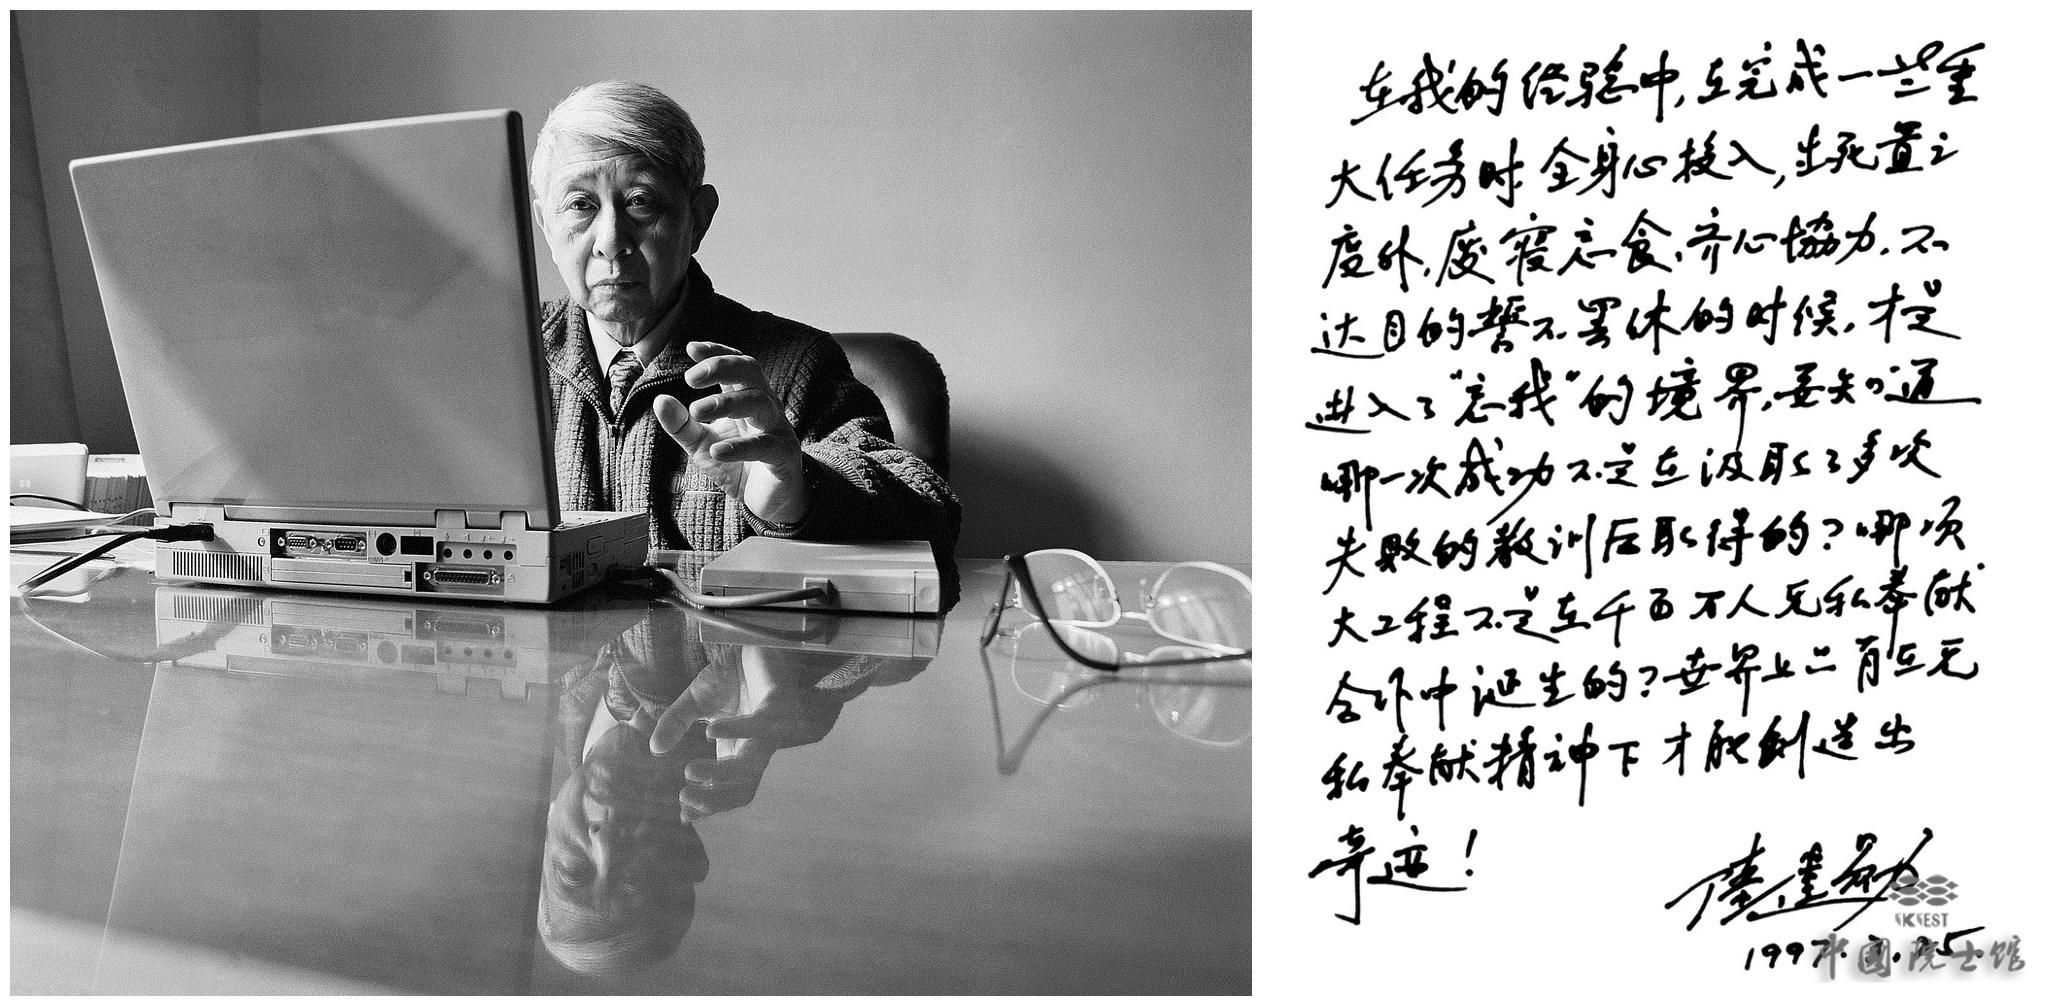 在我的经验中,在完成一些重
大任务时全身心投入,生死置之
度外,废寝忘食,齐心協力,不
达目的誓不罢休的时候,才是
进入了“忘我”的境界,要知道
哪一次成功不是在汲取了多次
失败的教训后取得的?哪项
大工程不是在千百万人无私奉献
合作中诞生的?世界上只有在无
私奉献精神下才能創造出
奇迹!
陸建勋
1997.
IKCEST
中國院士馆